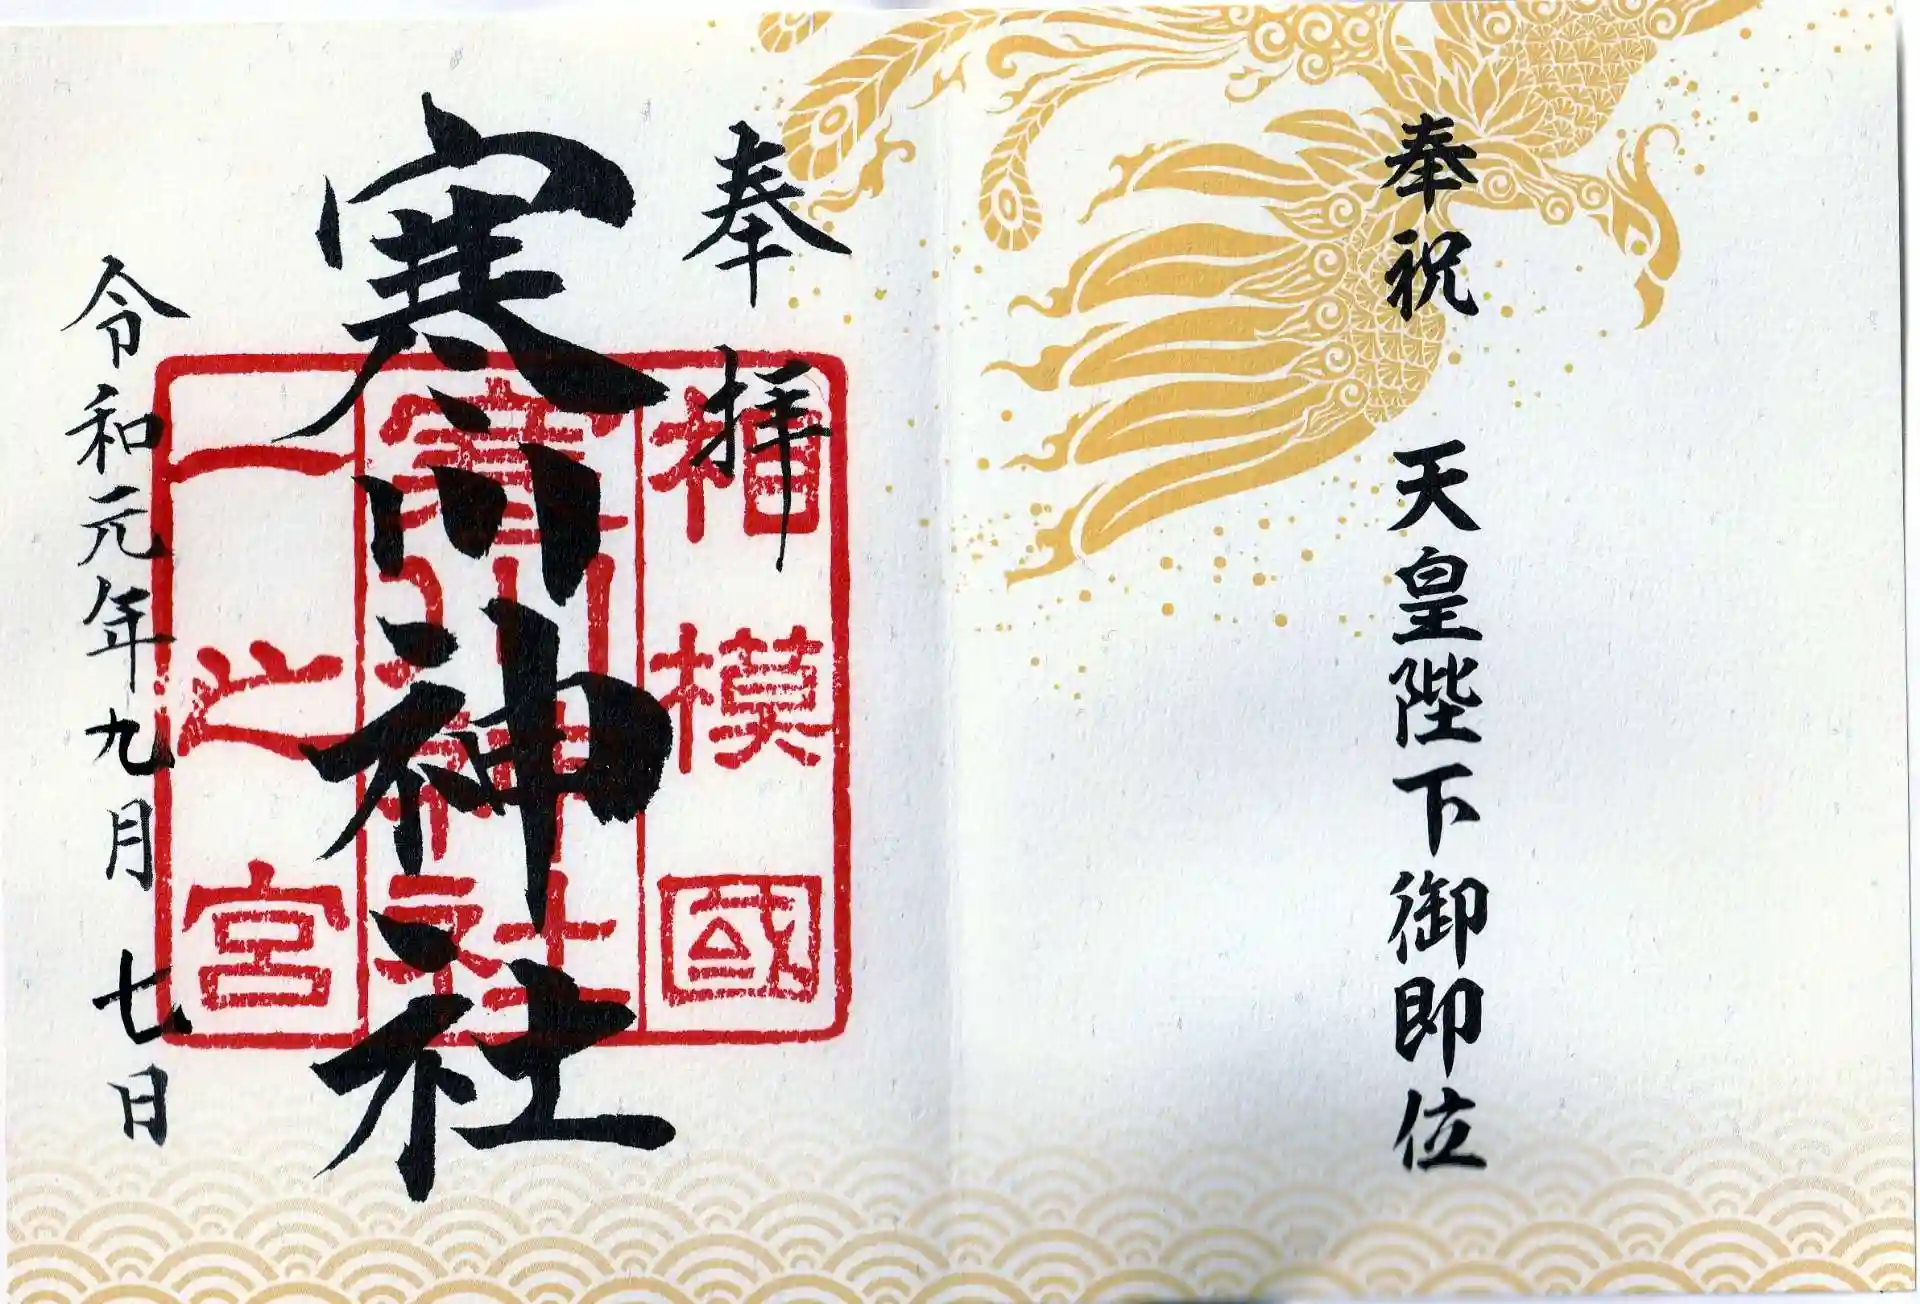 奉祝 天皇陛下御即位
奉拝
寒川神社
令和元年九月七日
相模國
寒川神社
一之宮